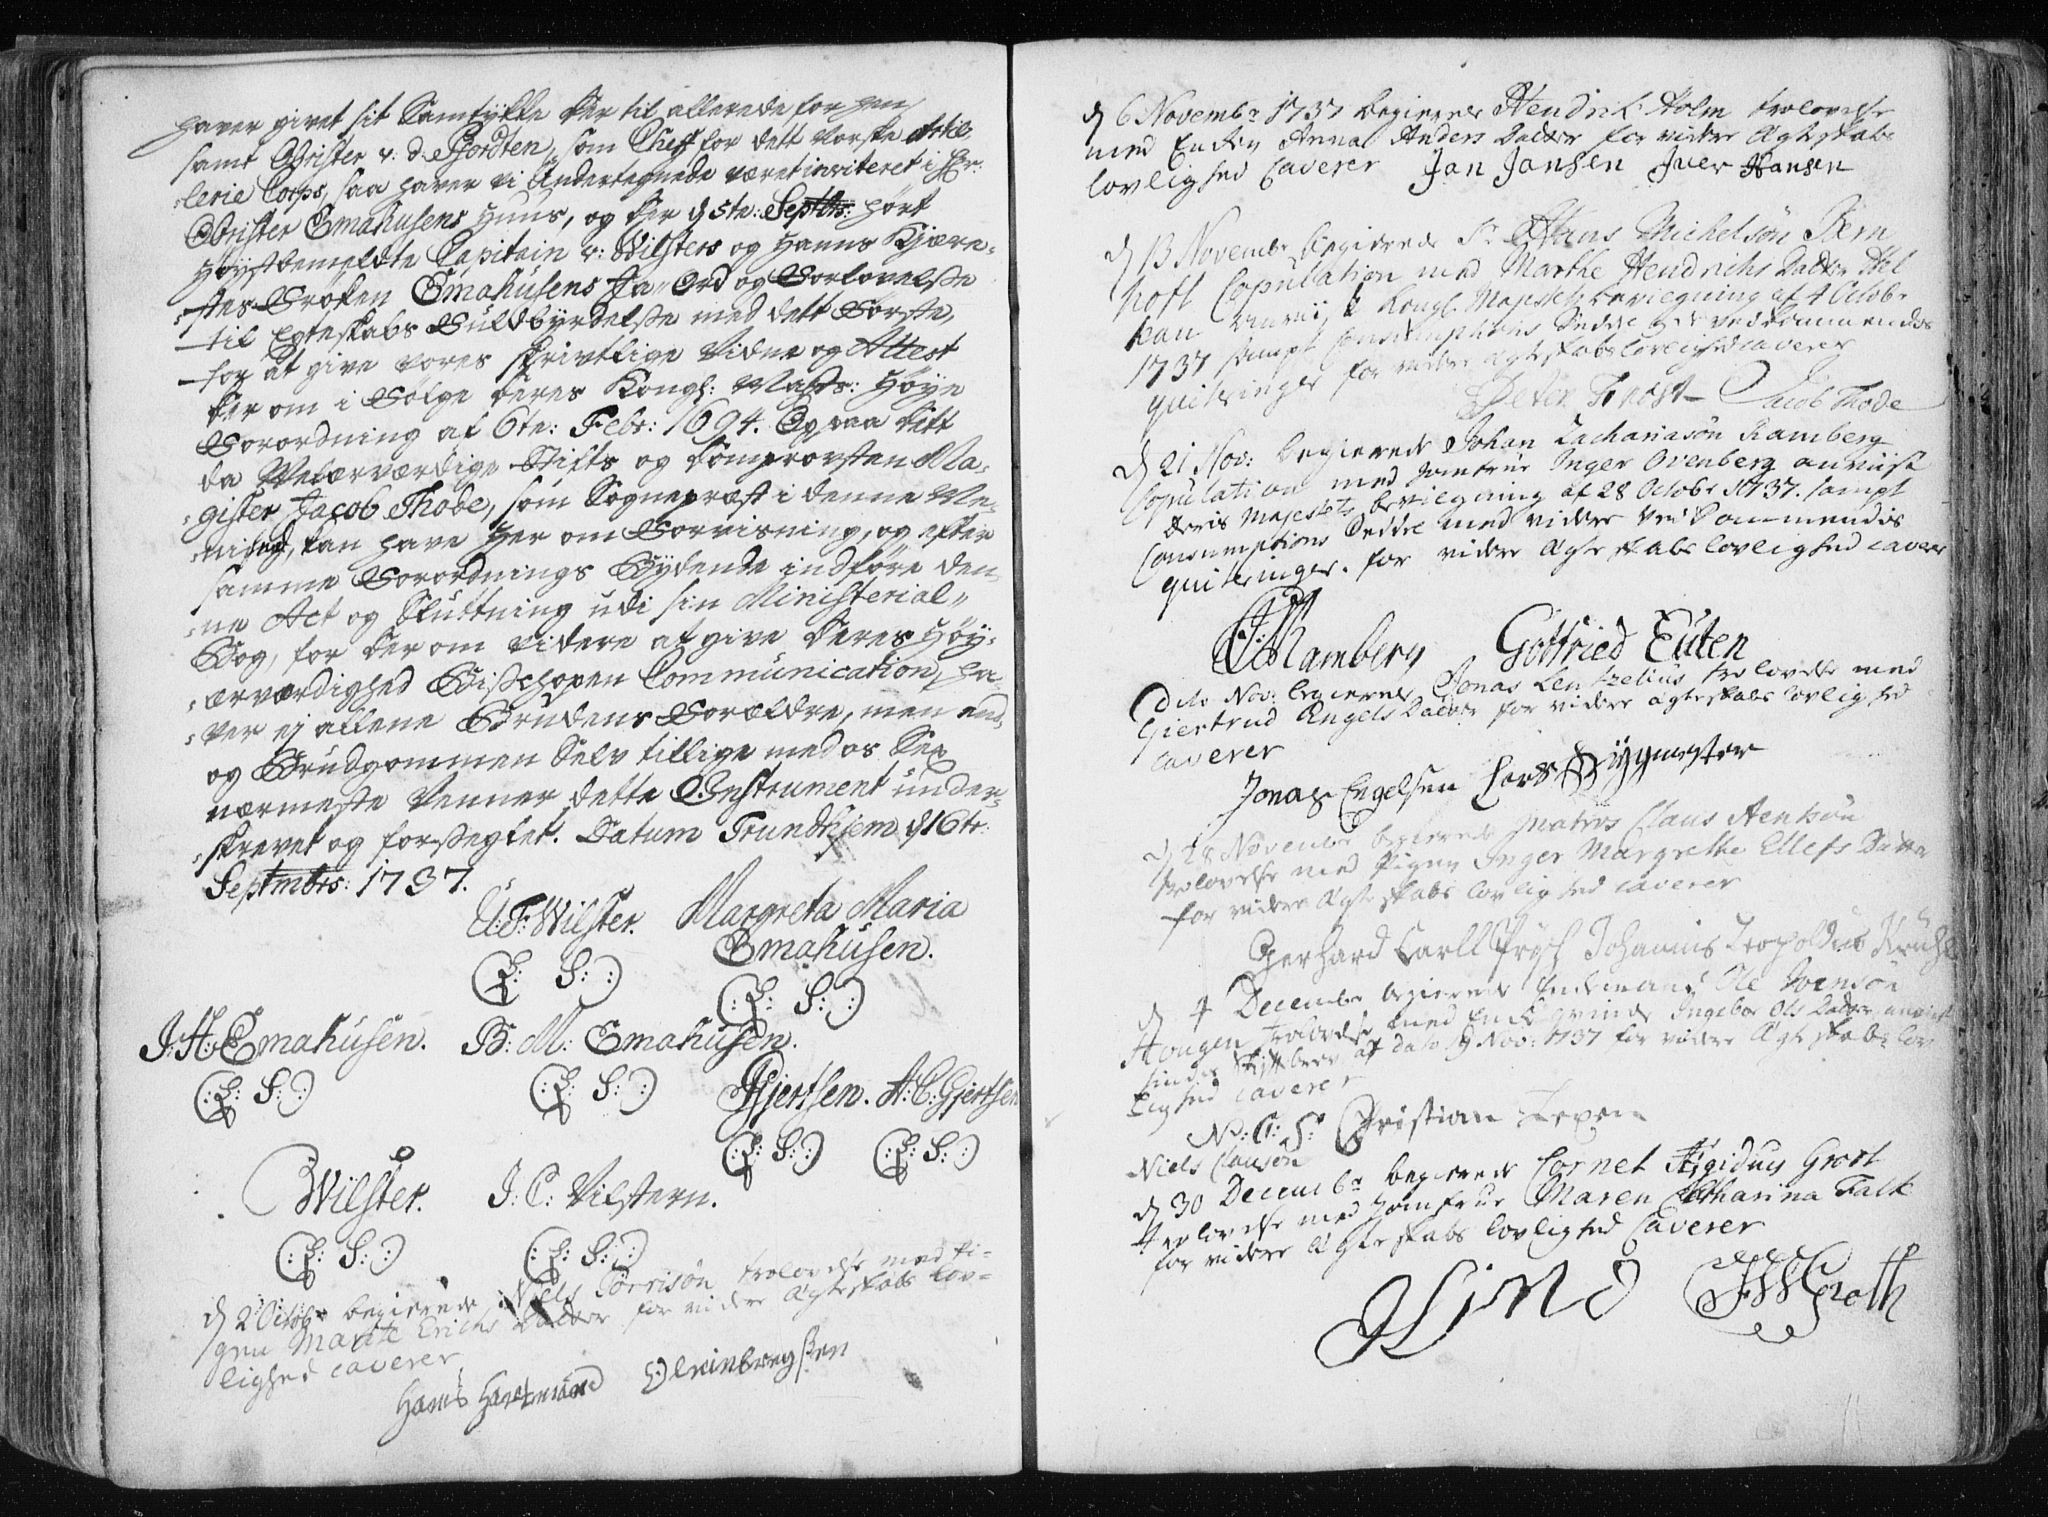 haver givet sit Samtykke der til allerede for hen
samt Obrister v: d. Pfordten, som Cheff for dett Norske Artil-
lerie Corps, saa haver vi Undertegnede været inviteret i Hr:
Obrister Emahusens Huus, og der d 5te: Septbr: hørt
Høystbemeldte Capitain v: Wilsters og hanns Kjære-
stes Frøken Emahusens Ja-Ord og Forlovelse
til Egteskabs Fuldbyrdelse med dett Første,
for at give vores skrivtlige Vidne og Attest
der om i Følge deres Kongl: Maysts: Høye
Forordning af 6te: Febr: 1694. Og paa dett
da Velærværdige Stifts og Domprovsten Ma-
gister Jacob Thode, som Sognepræst i denne Me-
nihed, kan have her om Forvisning, og efter
samme Forordnings Bydende indføre den-
ne Act og Sluttning udi sin Ministerial-
Bog, for der om videre at give deres Høy-
ærværdighed Bisschopen Communication, ha-
ver ej allene Brudens Forældre, men end
og Brudgommen Selv tillige med os Sex
nærmeste Venner dette Instrument under-
skrevet og forseglet. Datum Trundhjem d 16te:
Septmbrs: 1737.
U: F: Wilster. Margreta Maria
Emahusen.
(: L: S: :) (: L: S: :)
J: H: Emahusen. B: M: Emahusen.
(: L: S: :) (: L: S: :) Gjertsen. A: C: Gjertsen
(: L: S: :) (: L: S: :)
Wilster. J: C: Vilstern.
(: L: S: :) (: L: S: :)
d 2 Octobr begierede Niels Torrisön trolovelse med Pi-
gen Marite Erichs Datter for videre Ægteskabs lov-
lighed caverer
Hans Hartmand
d 6 Novembr 1737 begierede Hendrik Holm trolovelse
med Enken Anna Anders Datter for videre Ægteskabs
lovlighed Caverer Jan Jansen Iver Hansen
d 13 November begierede Sr Hans Michelsön Bern
hoft Copulation med Marthe Hendrichs Datter
Kongl. Majestets bevilgning af 4 Octobr
1737 sampt Consumptions Seddel vedkommendes
quitringer for videre Ægteskabs lovlighed caverer
Peter Frost Jacob Thode
d 21 Nov: begierede Johan Zachariasön Ramberg
Copulation med Jomfrue Inger Ovenberg anviist
deris Majestets bevilgning af 28 Octobr 1737. sampt
Consumptions Seddel med videre Vedkommendis
quitringer. for videre Ægteskabs lovlighed caverer
Ramberg Gottfried Euten
Dito Nov: begierede Jonas Lentzelius trolovelse med
Giertrud Engels Datter for videre Ægteskabs lovlighed
caverer
Jonas Engelsen Lars Bygmester
d 28 November begierede Matros Claus Aentsön
trolovelse med Pigen Inger Margrethe Ellefs Datter
for videre Ægteskabs lovlighed caverer
Gerhard Carll Johannis Leopoldus
d 4 December begierede Enkemand Ole Ivensön
Hougen trolovelse med Enke qvinde Ingebor Ols Datter anviist
sindes Skiftebrev af dato 19 Nov: 1737 for videre Ægteskabs lov
lighed caverer
N: C: S: Christian
Niels Clausön
d 30 Decembr begierede Cornet Ægidius Groot
trolovelse med Jomfrue Maren Catharina Falk
for videre Ægteskabs lovlighed Caverer
Hind Groth